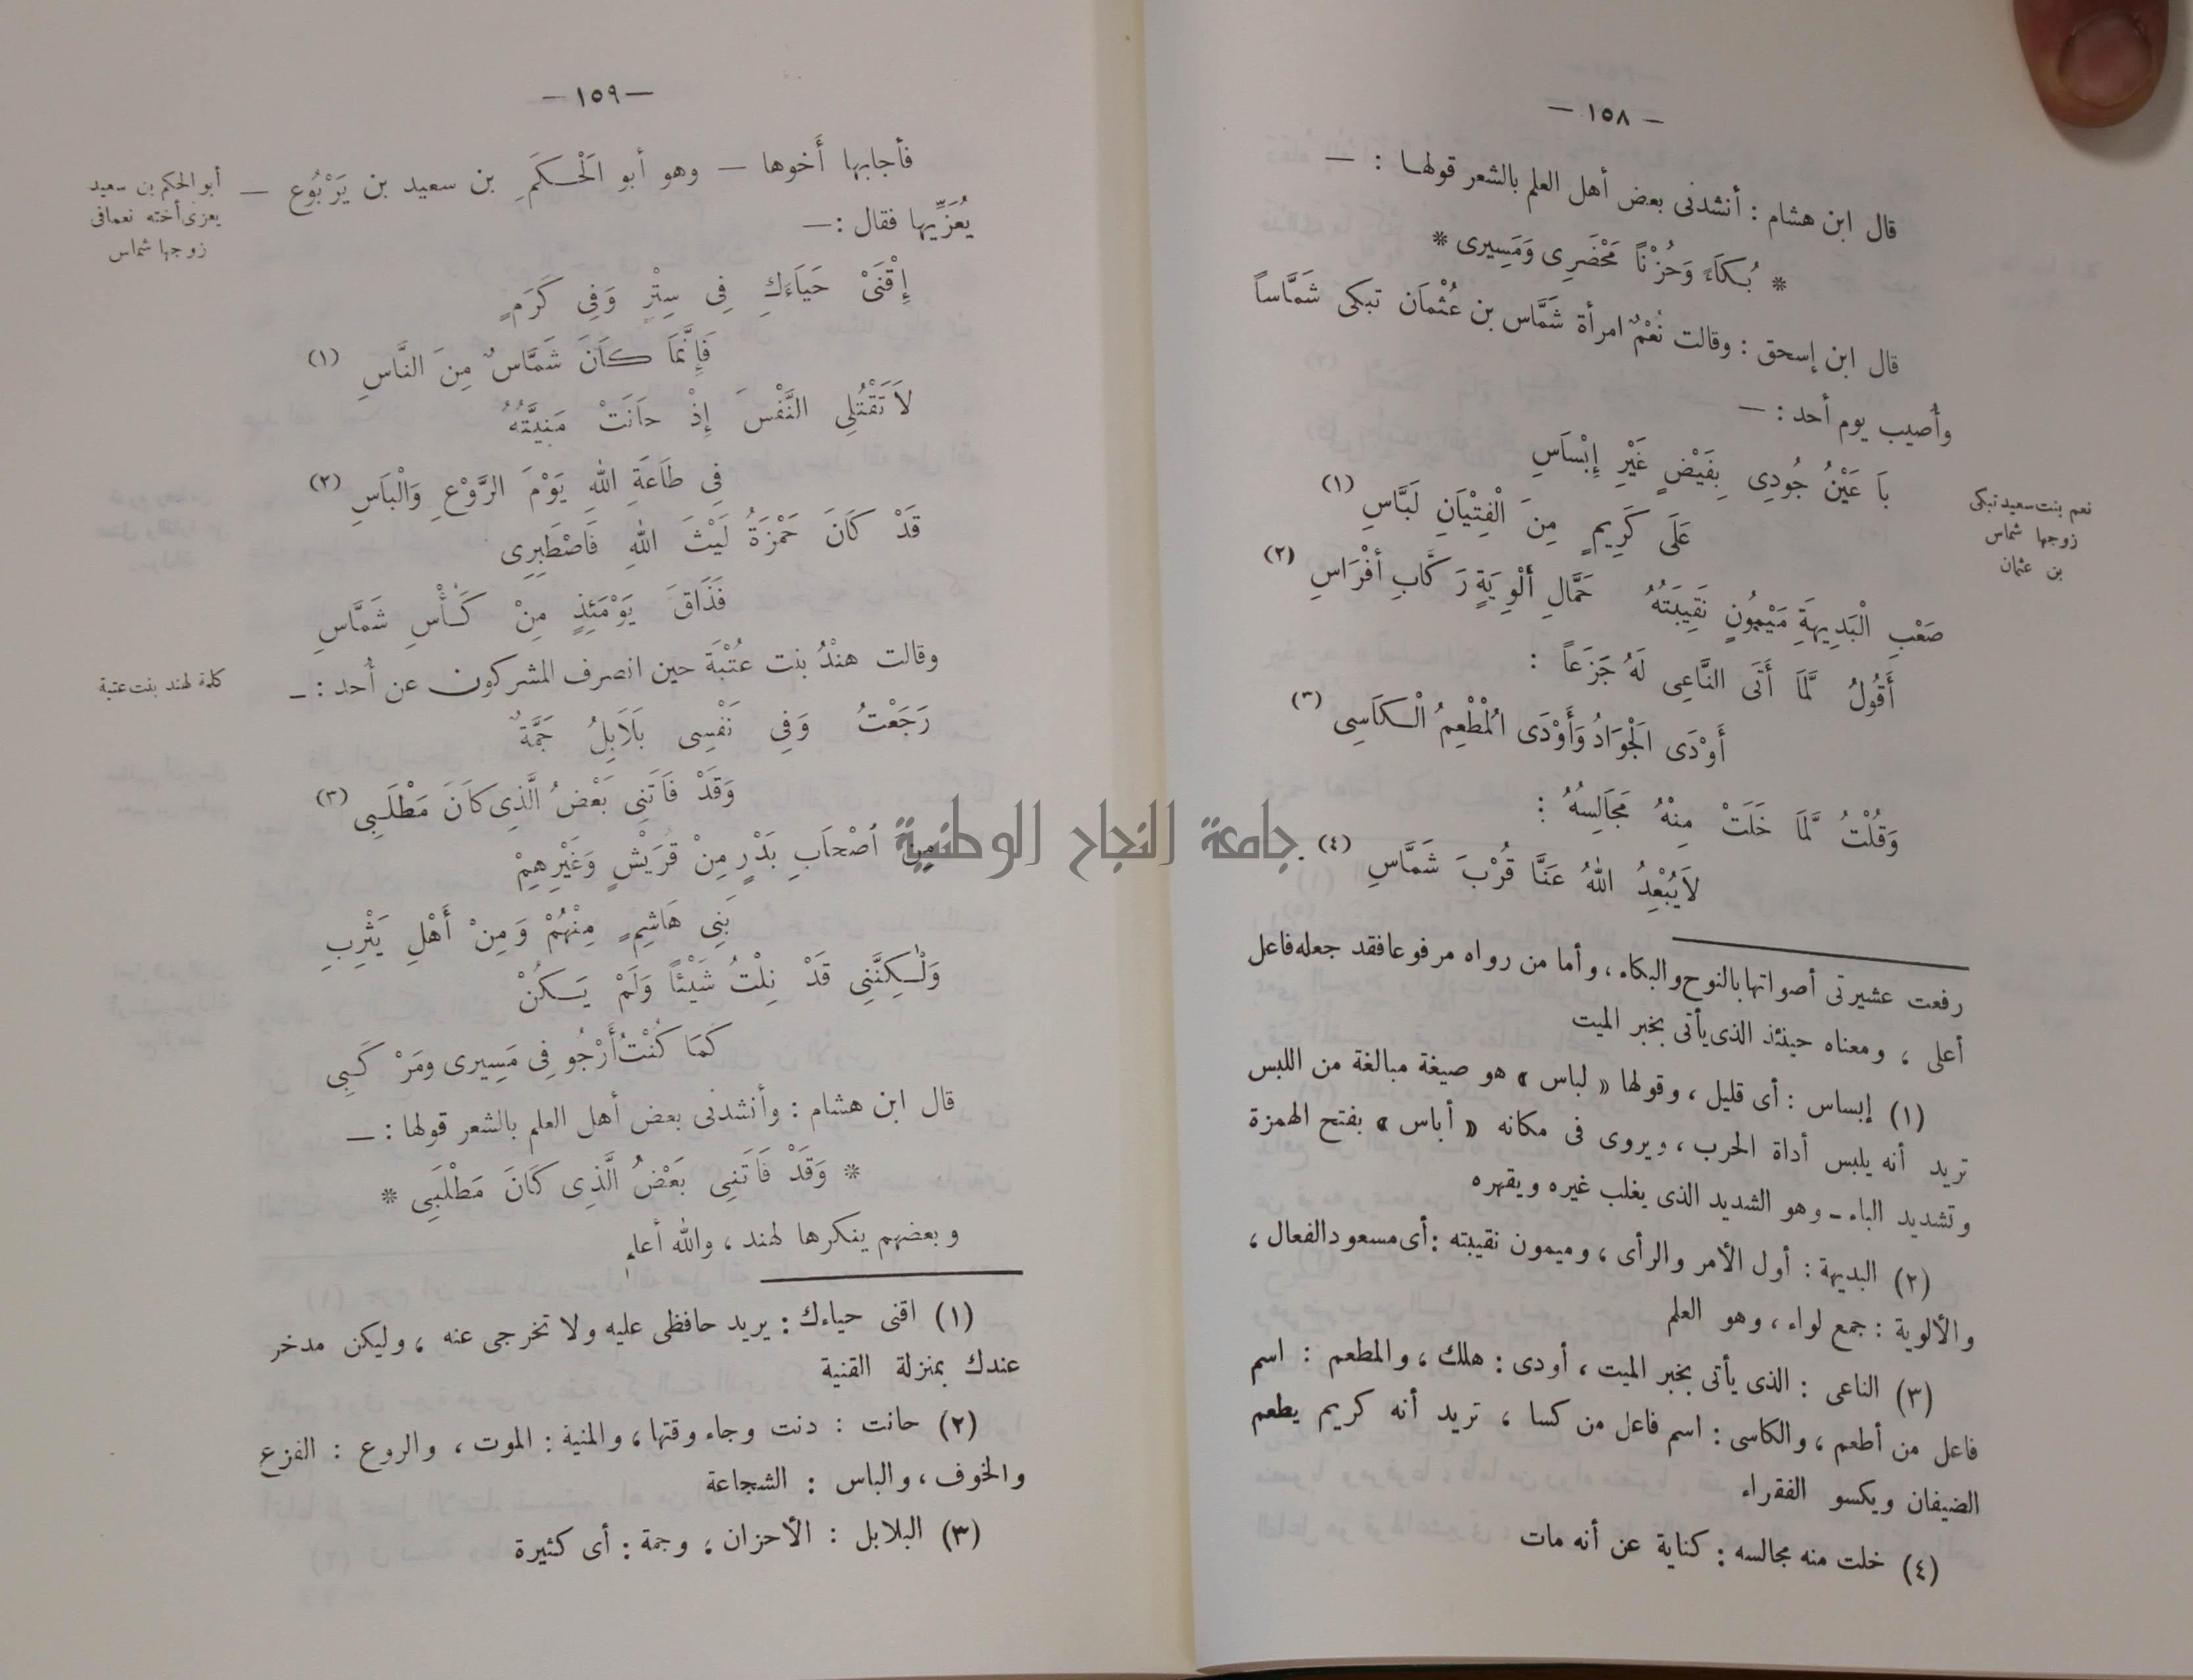 — ١٥٨ —
قال ابن هشام : أنشدنى بعض أهل العلم بالشعر قولها : —
* بُكَاءً وَحُزْنًا مَحْضَرِى وَمَسِيرِى *
قال ابن إسحق : وقالت نُعْمٌ امرأة شَمَّاس بن عُثْمَان تبكى شَمَّاساً
وأُصيب يوم أحد : —
يَا عَيْنُ جُودِى بِفَيْضٍ غَيْرِ إِبْسَاسِ
عَلَى كَرِيمٍ مِنَ الْفِتْيَانِ لَبَّاسِ (١)
صَعْبِ الْبَدِيهَةِ مَيْمُونٍ نَقِيبَتُهُ حَمَّالِ أَلْوِيَةٍ رَكَّابِ أَفْرَاسِ (٢)
أَقُولُ لَمَّا أَتَى النَّاعِى لَهُ جَزَعاً :
أَوْدَى الْجَوَادُ وَأَوْدَى الْمُطْعِمُ الْكَاسِى (٣)
وَقُلْتُ لَمَّا خَلَتْ مِنْهُ مَجَالِسُهُ :
لاَ يُبْعِدُ اللهُ عَنَّا قُرْبَ شَمَّاسِ (٤)
نعم بنت سعيد تبكى
زوجها شماس
بن عثمان
رفعت عشيرتى أصواتها بالنوح والبكاء ، وأما من رواه مرفوعا فقد جعله فاعل
أعلى ، ومعناه حينئذ الذى يأتى بخبر الميت
(١) إبساس : أى قليل ، وقولها « لباس » هو صيغة مبالغة من اللبس
تريد أنه يلبس أداة الحرب ، ويروى فى مكانه « أباس » بفتح الهمزة
وتشديد الباء - وهو الشديد الذى يغلب غيره ويقهره
(٢) البديهة : أول الأمر والرأى ، وميمون نقيبته : أى مسعود الفعال ،
والألوية : جمع لواء ، وهو العلم
(٣) الناعى : الذى يأتى بخبر الميت ، أودى : هلك ، والمطعم : اسم
فاعل من أطعم ، والكاسى : اسم فاعل من كسا ، تريد أنه كريم يطعم
الضيفان ويكسو الفقراء
(٤) خلت منه مجالسه : كناية عن أنه مات
— ١٥٩ —
فأجابها أَخوها — وهو أبو الْحَكَمِ بن سعيد بن يَرْبُوع —
يُعَزِّيها فقال : —
إِقْنَىْ حَيَاءَكِ فِى سِتْرٍ وَفِى كَرَمٍ
فَإِنَّمَا كَانَ شَمَّاسٌ مِنَ النَّاسِ (١)
لاَ تَقْتُلِى النَّفْسَ إِذْ حَانَتْ مَنِيَّتُهُ
فِى طَاعَةِ اللهِ يَوْمَ الرَّوْعِ وَالْبَاسِ (٢)
قَدْ كَانَ حَمْزَةُ لَيْثَ اللهِ فَاصْطَبِرِى
فَذَاقَ يَوْمَئِذٍ مِنْ كَأْسِ شَمَّاسِ
وقالت هنْدُ بنت عُتْبَةَ حين انصرف المشركون عن أُحد : —
رَجَعْتُ وَفِى نَفْسِى بَلاَبِلُ جَمَّةٌ
وَقَدْ فَاتَنِى بَعْضُ الَّذِى كَانَ مَطْلَبِى (٣)
مِنَ أصْحَابِ بَدْرٍ مِنْ قُرَيْشٍ وَغَيْرِهِمْ
بَنِى هَاشِمٍ مِنْهُمْ وَمِنْ أَهْلِ يَثْرِبِ
وَلٰكِنَّنِى قَدْ نِلْتُ شَيْئًا وَلَمْ يَكُنْ
كَمَا كُنْتُ أَرْجُو فِى مَسِيرِى ومَرْكَبِى
قال ابن هشام : وأنشدنى بعض أهل العلم بالشعر قولها : —
* وَقَدْ فَاتَنِى بَعْضُ الَّذِى كَانَ مَطْلَبِى *
وبعضهم ينكرها لهند ، والله أعلم
أبو الحكم بن سعيد
يعزى أخته نعمافى
زوجها شماس
كلمة لهند بنت عتبة
(١) اقنى حياءك : يريد حافظى عليه ولا تخرجى عنه ، وليكن مدخر
عندك بمنزلة القنية
(٢) حانت : دنت وجاء وقتها ، والمنية : الموت ، والروع : الفزع
والخوف ، والباس : الشجاعة
(٣) البلابل : الأحزان ، وجمة : أى كثيرة
جامعة النجاح الوطنية